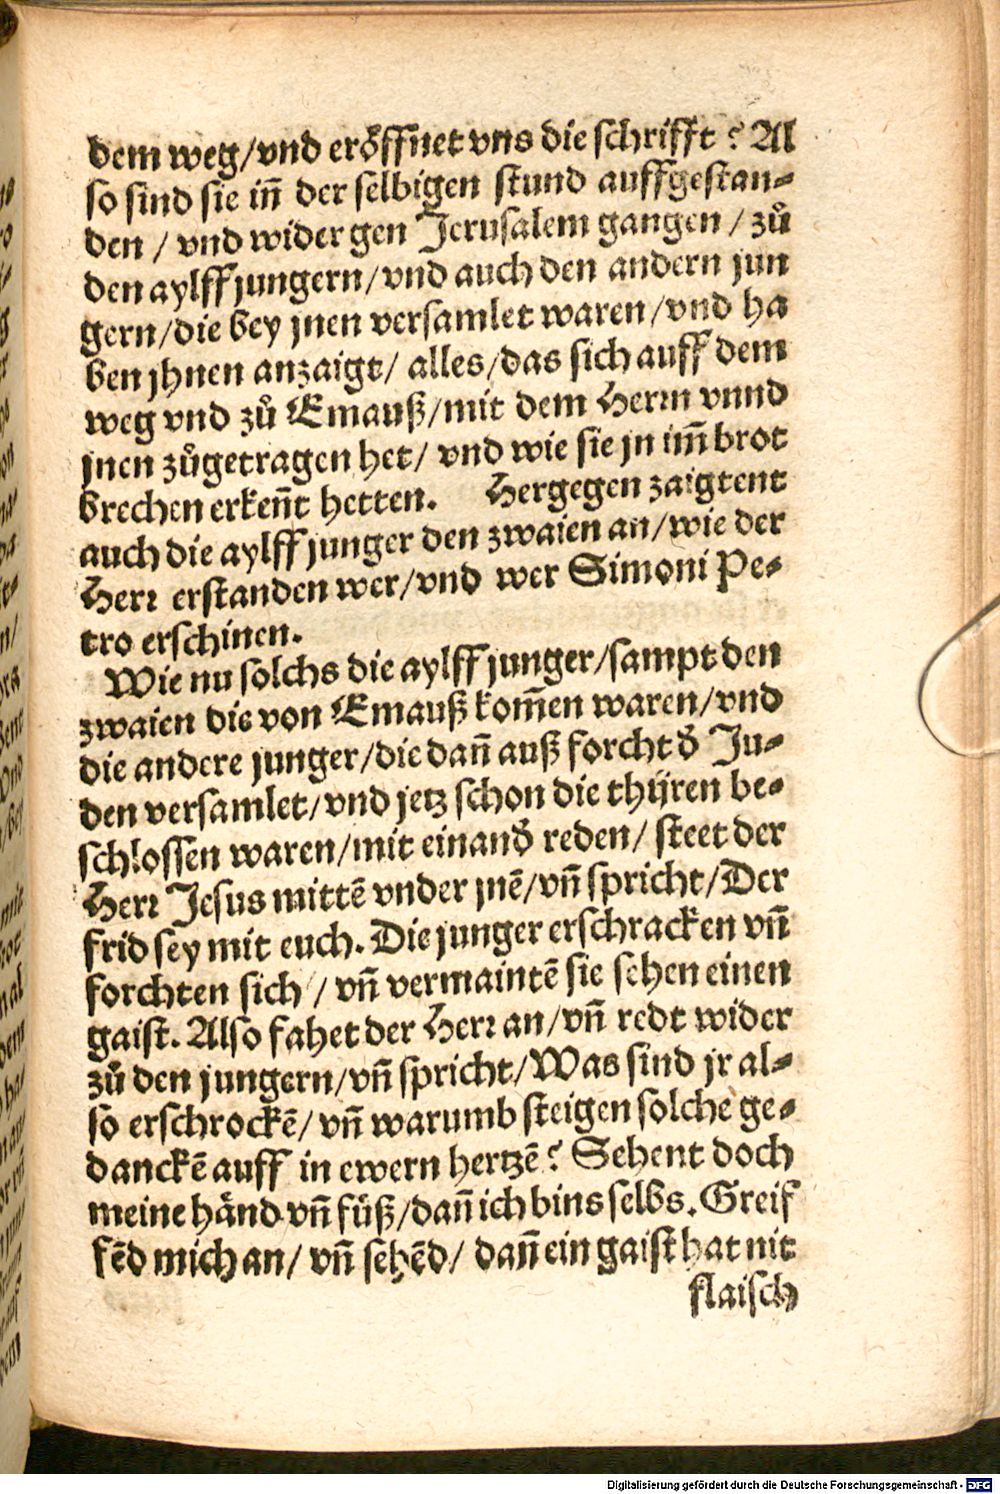 dem weg/vnd eröffnet vns die schrifft? Al
so sind sie iñ der selbigen stund auffgestan-
den / vnd wider gen Jerusalem gangen / zů
den aylff jungern/vnd auch den andern jun
gern/die bey jnen versamlet waren/vnd ha
ben jhnen anzaigt/ alles/das sich auff dem
weg vnd zů Emauß/mit dem Herrn vnnd
jnen zůgetragen het/ vnd wie sie jn im̃ brot
brechen erkeñt hetten. Hergegen zaigtent
auch die aylff junger den zwaien an/wie der
Herr erstanden wer/vnd wer Simoni Pe-
tro erschinen.
Wie nu solchs die aylff junger/sampt den
zwaien die von Emauß kom̃en waren/vnd
die andere junger/die dañ auß forcht d̕ Ju-
den versamlet/vnd jetz schon die thüren be-
schlossen waren/mit einand̕ reden/ steet der
Herr Jesus mittẽ vnder jnẽ/vñ spricht/Der
frid sey mit euch. Die junger erschracken vñ
forchten sich / vñ vermaintẽ sie sehen einen
gaist. Also fahet der Herr an/vñ redt wider
zů den jungern/vñ spricht/Was sind jr al-
so erschrockẽ/ vñ warumb steigen solche ge-
danckẽ auff in ewern hertzẽ? Sehent doch
meine händ vñ füß/dañ ich bins selbs. Greif
fẽd mich an/ vñ sehẽd/ dañ ein gaist hat nit
flaisch
Digitalisierung gefördert durch die Deutsche Forschungsgemeinschaft - DFG